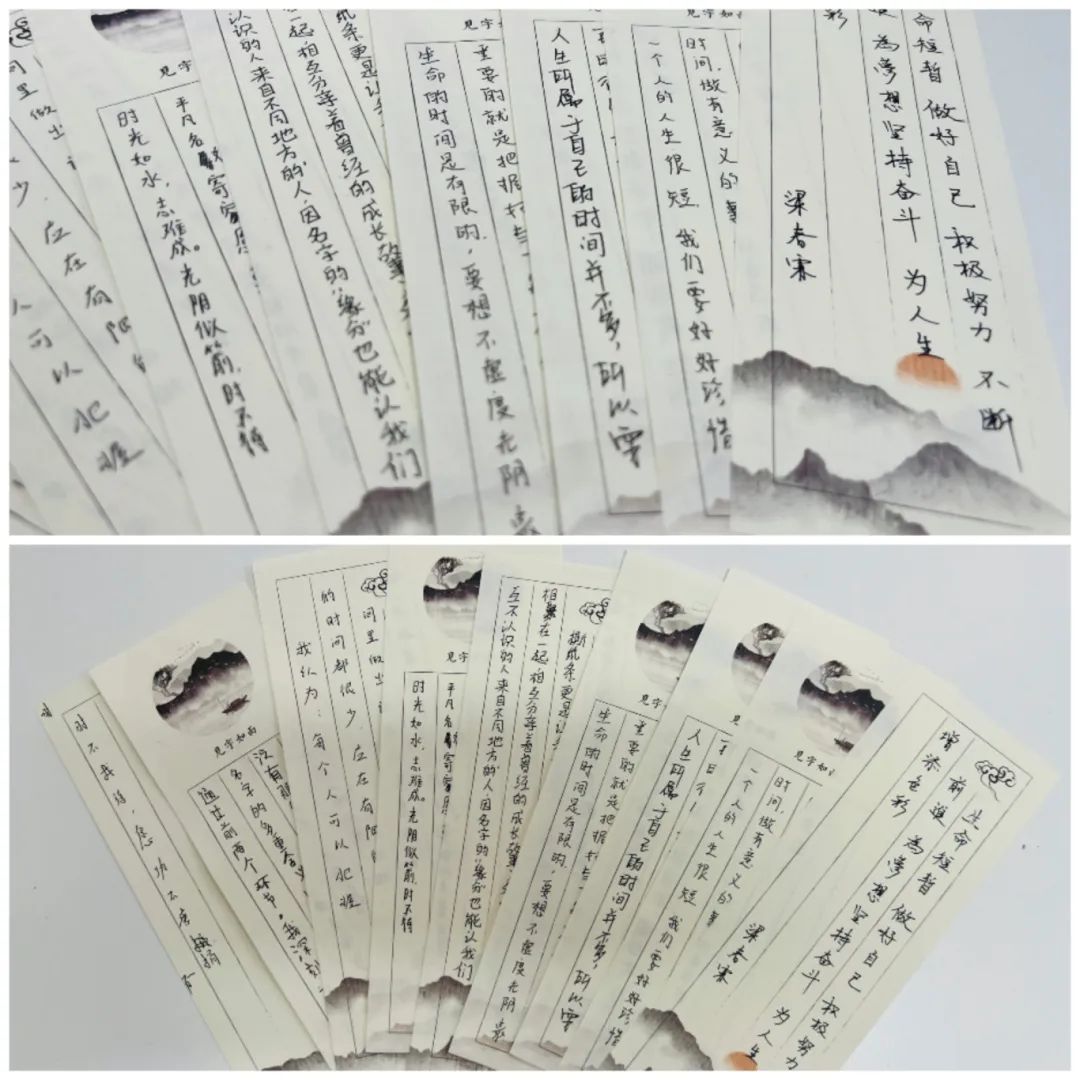 问里做出
少，应在有限
人可以把握
见字
平凡名
时光如水，志难成。光阴似箭，时不待
纸条更是让
起相互分享着曾经的成长故事
认识的人来自不同地方的人，因名字的缘分也能认我们
见字如
重要的就是把握
生命的时间是有限的，要想不虚度光阴 最
人生的属于自己的时间并不多，所以要
时间，做有意义的事
一个人的人生很短，我们要好好珍惜
命短暂 做好自己 积极努力 不断
为梦想坚持奋斗 为人生
彩
梁春寒
时不我待，
见字如面
没有
名字的多重含义
通过前两个环节，我深刻
问里做出
的时间都很少，应在有限
我认为：每个人可以把握
见字
平凡名
时光如水，志难成。光阴似箭，时不待
纸条更是让
相聚在一起相互分享着曾经的成长故事
互不认识的人来自不同地方的人因名字的缘分也能认我们
见字
重要的就是把握
生命的时间是有限的，要想不虚度光阴 最
见字
人生的属于自己的时间并不多，所以要
见字如
时间，做有意义的事
一个人的人生很短，我们要好好珍惜
生命短暂 做好自己 积极努力
前进 为梦想坚持奋斗 为人生
增添色彩
梁春寒